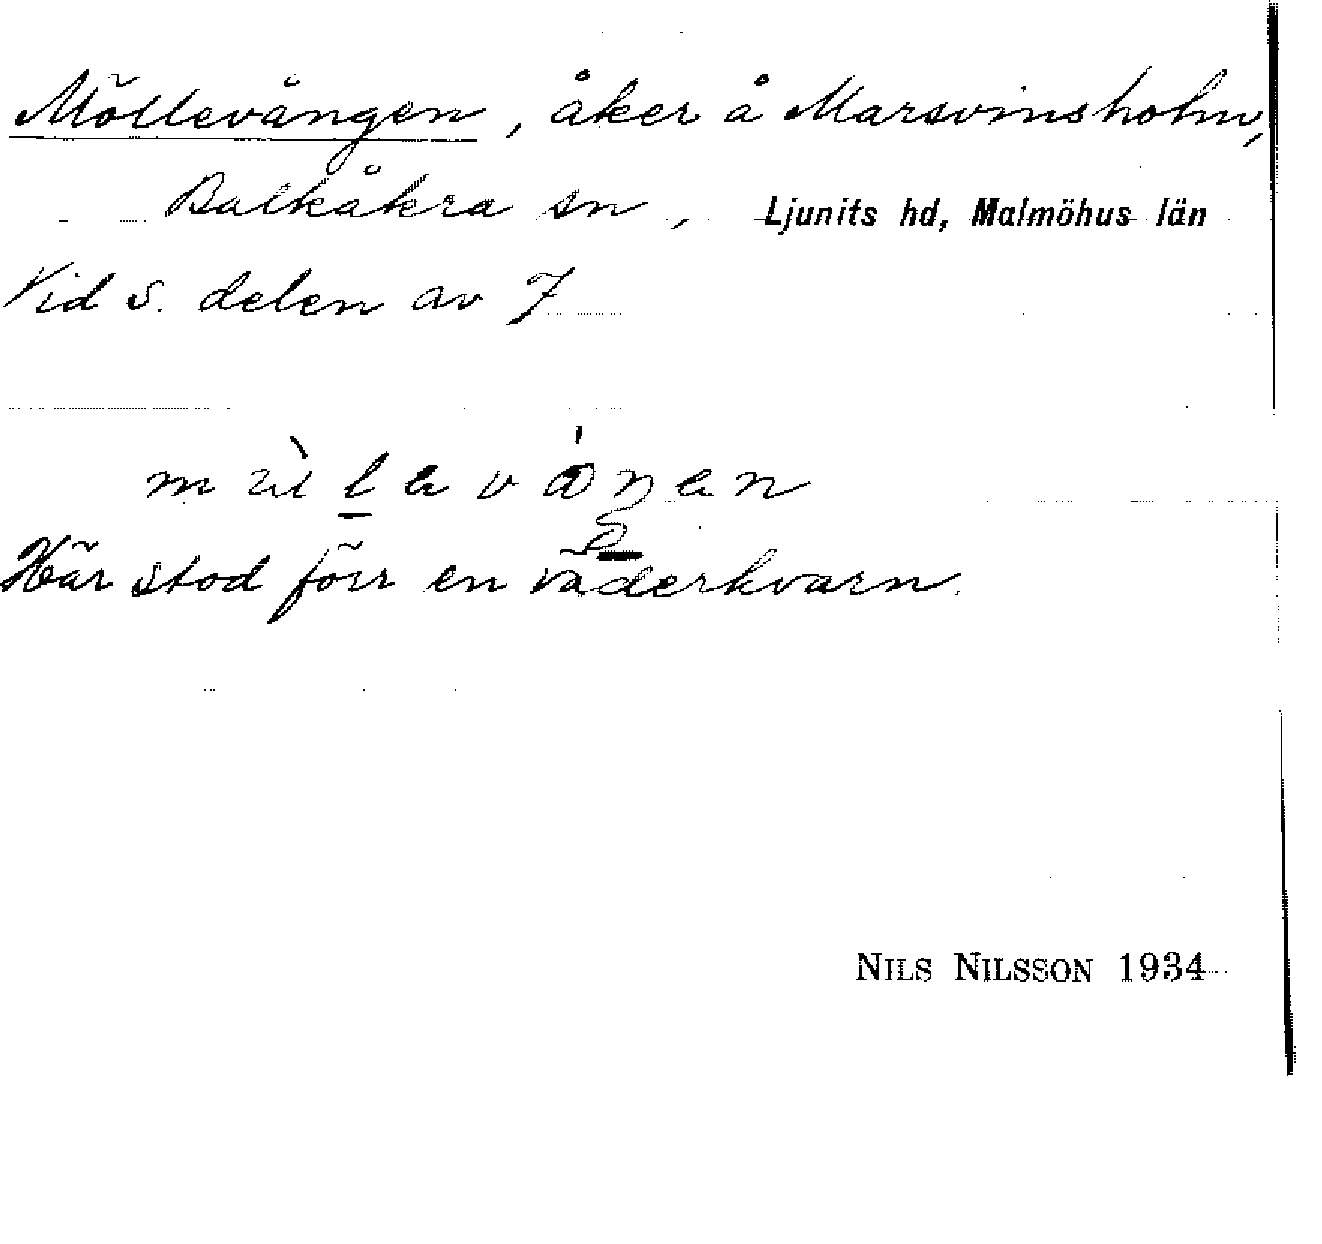 Möllevången, åker å Marsvinsholm,
Balkåkra sn, Ljunits hd, Malmöhus län
Vid s. delen av 7
Här stod förr en väderkvarn.
NILS NILSSON 1934